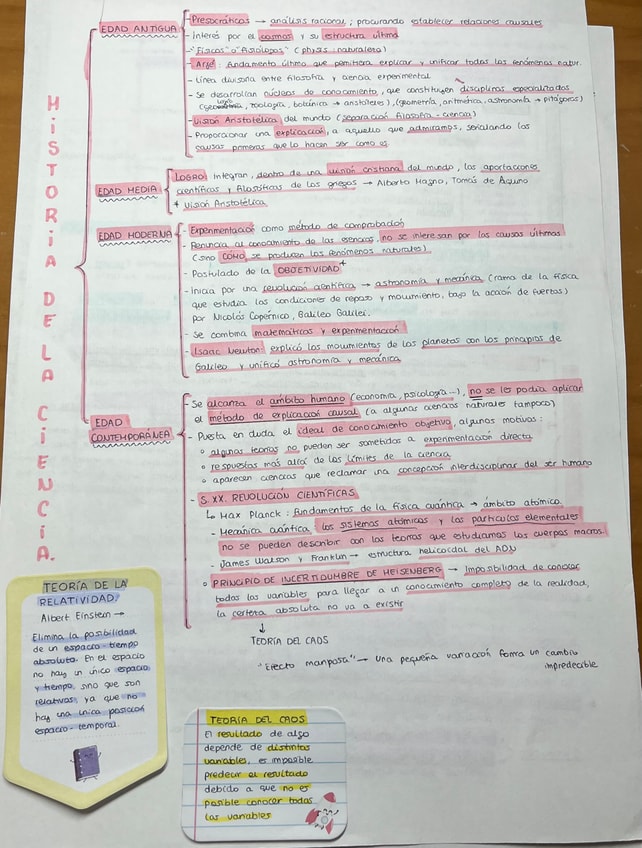 HISTORIA DE LA CIENCIA.
EDAD ANTIGUA
- Presocráticos → análisis racional; procurando establecer relaciones causales
- Interés por el cosmos y su estructura última
- "Físicos" o "Fisiólogos" (physis: naturaleza)
- Arjé: Fundamento último que permitiera explicar y unificar todos los fenómenos natur.
- Línea divisoria entre filosofía y ciencia experimental
- Se desarrollan núcleos de conocimiento, que constituyen disciplinas especializadas
zoología, botánica → aristóteles), (geometría, aritmética, astronomía → pitágoras)
- Visión Aristotélica del mundo (separación filosofía - ciencia)
- Proporcionar una explicación, a aquello que admiramos, señalando las
causas primeras que lo hacen ser como es.
EDAD MEDIA
LOGRO: Integran, dentro de una visión cristiana del mundo, las aportaciones
científicas y filosóficas de los griegos → Alberto Magno, Tomás de Aquino
+ Visión Aristotélica
EDAD MODERNA
- Experimentación como método de comprobación
- Renuncia al conocimiento de las esencias, no se interesan por las causas últimas
(sino CÓMO se producen los fenómenos naturales)
- Postulado de la OBJETIVIDAD
- Inicia por una revolución científica → astronomía y mecánica (rama de la física
que estudia las condiciones de reposo y movimiento, bajo la acción de fuerzas)
por Nicolás Copérnico, Galileo Galilei.
- Se combina matemáticas y experimentación
- Isaac Newton: explicó los movimientos de los planetas con los principios de
Galileo y unificó astronomía y mecánica
EDAD CONTEMPORÁNEA
- Se alcanza el ámbito humano (economía, psicología...), no se les podía aplicar
el método de explicación causal (a algunas ciencias naturales tampoco)
- Puesta en duda el ideal de conocimiento objetivo, algunos motivos:
° algunas teorías no pueden ser sometidas a experimentación directa
° respuestas más allá de los límites de la ciencia
° aparecen ciencias que reclamar una concepción interdisciplinar del ser humano
- S.XX. REVOLUCIÓN CIENTÍFICAS
↳ Max Planck: fundamentos de la física cuántica → ámbito atómico.
- Mecánica cuántica: los sistemas atómicos y las partículas elementales
no se pueden describir con las teorías que estudiamos los cuerpos macros.
- James Watson y Franklin → estructura helicoidal del ADN
° PRINCIPIO DE INCERTIDUMBRE DE HEISENBERG → Imposibilidad de conocer
todas las variables para llegar a un conocimiento completo de la realidad,
la certeza absoluta no va a existir
↓
TEORÍA DEL CAOS
"Efecto mariposa" → una pequeña variación forma un cambio
impredecible
TEORÍA DE LA
RELATIVIDAD.
Albert Einstein →
Elimina la posibilidad
de un espacio-tiempo
absoluto. En el espacio
no hay un único espacio
y tiempo, sino que son
relativos, ya que no
hay una única posición
espacio-temporal.
TEORÍA DEL CAOS
El resultado de algo
depende de distintas
variables, es imposible
predecir el resultado
debido a que no es
posible conocer todas
las variables